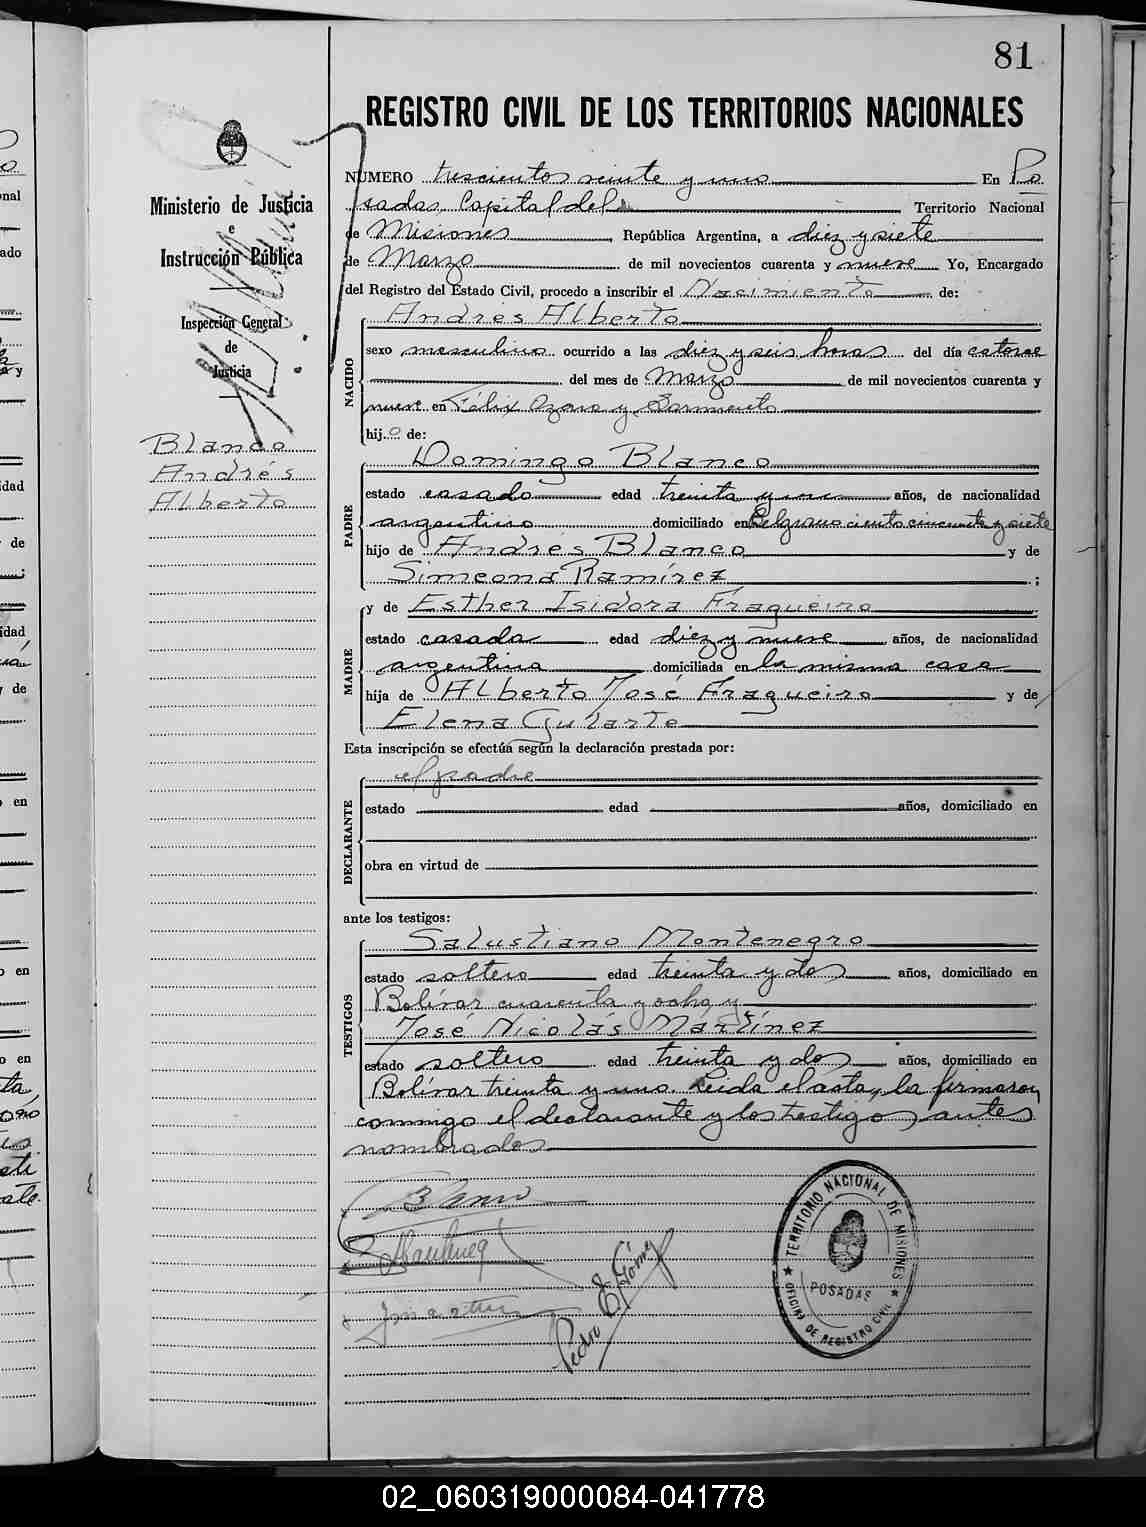 81
REGISTRO CIVIL DE LOS TERRITORIOS NACIONALES
Ministerio de Justicia
e
Instrucción Pública
Inspección General
de
Justicia
Blanco
Andrés
Alberto
NÚMERO trescientos veinte y uno En Po
sadas Capital del Territorio Nacional
de Misiones, República Argentina, a diez y siete
de Marzo de mil novecientos cuarenta y nueve Yo, Encargado
del Registro del Estado Civil, procedo a inscribir el Nacimiento de:
NACIDO
Andrés Alberto
sexo masculino ocurrido a las diez y seis horas del día catorce
del mes de Marzo de mil novecientos cuarenta y
nueve en Félix Azara y Sarmiento
hijo de:
PADRE
Domingo Blanco
estado casado edad treinta y un años, de nacionalidad
argentino domiciliado en Belgrano ciento cincuenta y siete
hijo de Andrés Blanco y de
Simeona Ramírez ;
MADRE
y de Esther Isidora Fragueiro
estado casada edad diez y nueve años, de nacionalidad
argentina domiciliada en la misma casa
hija de Alberto José Fragueiro y de
Elena Gularte
Esta inscripción se efectúa según la declaración prestada por:
DECLARANTE
el padre
estado edad años, domiciliado en
obra en virtud de
ante los testigos:
TESTIGOS
Salustiano Montenegro
estado soltero edad treinta y dos años, domiciliado en
Bolívar cuarenta y ocho y
José Nicolás Martínez
estado soltero edad treinta y dos años, domiciliado en
Bolívar treinta y uno. Leida el acta, la firmaron
conmigo el declarante y los testigos antes
nombrados
Pedro E. Gómez
TERRITORIO NACIONAL DE MISIONES
POSADAS
OFICINA DE REGISTRO CIVIL
02_060319000084-041778